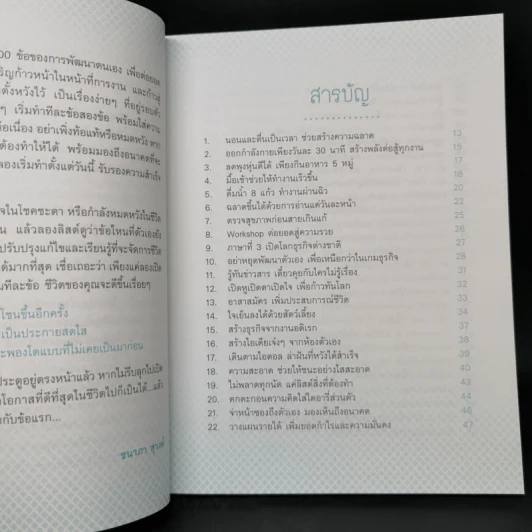 00 ข้อของการพัฒนาตนเอง เพื่อต่อยอด
ริญก้าวหน้าในหน้าที่การงาน และก้าวสู่
ตั้งหวังไว้ เป็นเรื่องง่ายๆ ที่อยู่รอบตัว
ๆ เริ่มทำทีละข้อสองข้อ พร้อมใส่ความ
อเนื่อง อย่าเพิ่งท้อแท้หรือหมดหวัง หาก
ต้องทำให้ได้ พร้อมมองถึงอนาคตที่จะ
ลองเริ่มทำตั้งแต่วันนี้ รับรองความสำเร็จ
จในโชคชะตา หรือกำลังหมดหวังในชีวิต
น แล้วลองลิสต์ดูว่าข้อไหนที่ตัวเองยัง
ปรับปรุงแก้ไขและเรียนรู้ที่จะจัดการชีวิต
ได้มากที่สุด เชื่อเถอะว่า เพียงแค่ลองเปิด
ทีละข้อ ชีวิตของคุณจะดีขึ้นเรื่อยๆ
โชนขึ้นอีกครั้ง
เป็นประกายสดใส
ะพองโตแบบที่ไม่เคยเป็นมาก่อน
ประตูอยู่ตรงหน้าแล้ว หากไม่รีบลุกไปเปิด
โอกาสที่ดีที่สุดในชีวิตไปก็เป็นได้...แล้ว
กับข้อแรก...
ชนาภา
สารบัญ
1. นอนและตื่นเป็นเวลา ช่วยสร้างความฉลาด 13
2. ออกกำลังกายเพียงวันละ 30 นาที สร้างพลังต่อสู้ทุกงาน 15
3. ลดพุงหุ่นดีได้ เพียงกินอาหาร 5 หมู่ 17
4. มื้อเช้าช่วยให้ทำงานเร็วขึ้น 18
5. ดื่มน้ำ 8 แก้ว ทำงานผ่านฉิว 20
6. ฉลาดขึ้นได้ด้วยการอ่านแค่วันละหน้า 22
7. ตรวจสุขภาพก่อนสายเกินแก้
8. Workshop ต่อยอดสู่ความรวย
9. ภาษาที่ 3 เปิดโลกธุรกิจต่างชาติ
10. อย่าหยุดพัฒนาตัวเอง เพื่อเหนือกว่าในเกมธุรกิจ
11. รู้ทันข่าวสาร เดี๋ยวคุยกับใครไม่รู้เรื่อง 31
12. เปิดหูเปิดตาเปิดใจ เพื่อก้าวทันโลก 31
13. อาสาสมัคร เพิ่มประสบการณ์ชีวิต 33
14. ใจเย็นลงได้ด้วยสัตว์เลี้ยง 34
15. สร้างธุรกิจจากงานอดิเรก 37
16. สร้างไอเดียเจ๋งๆ จากห้องตัวเอง 38
17. เดินตามไอดอล ล่าฝันที่หวังได้สำเร็จ
18. ความสะอาด ช่วยให้ชนะอย่างใสสะอาด 40
19. ไม่พลาดทุกนัด แค่ลิสต์สิ่งที่ต้องทำ 43
20. ตกตะกอนความคิดใส่ไดอารี่ส่วนตัว 44
21. จ่าหน้าซองถึงตัวเอง มองเห็นถึงอนาคต 46
22. วางแผนรายได้ เพิ่มยอดกำไรและความมั่นคง 47